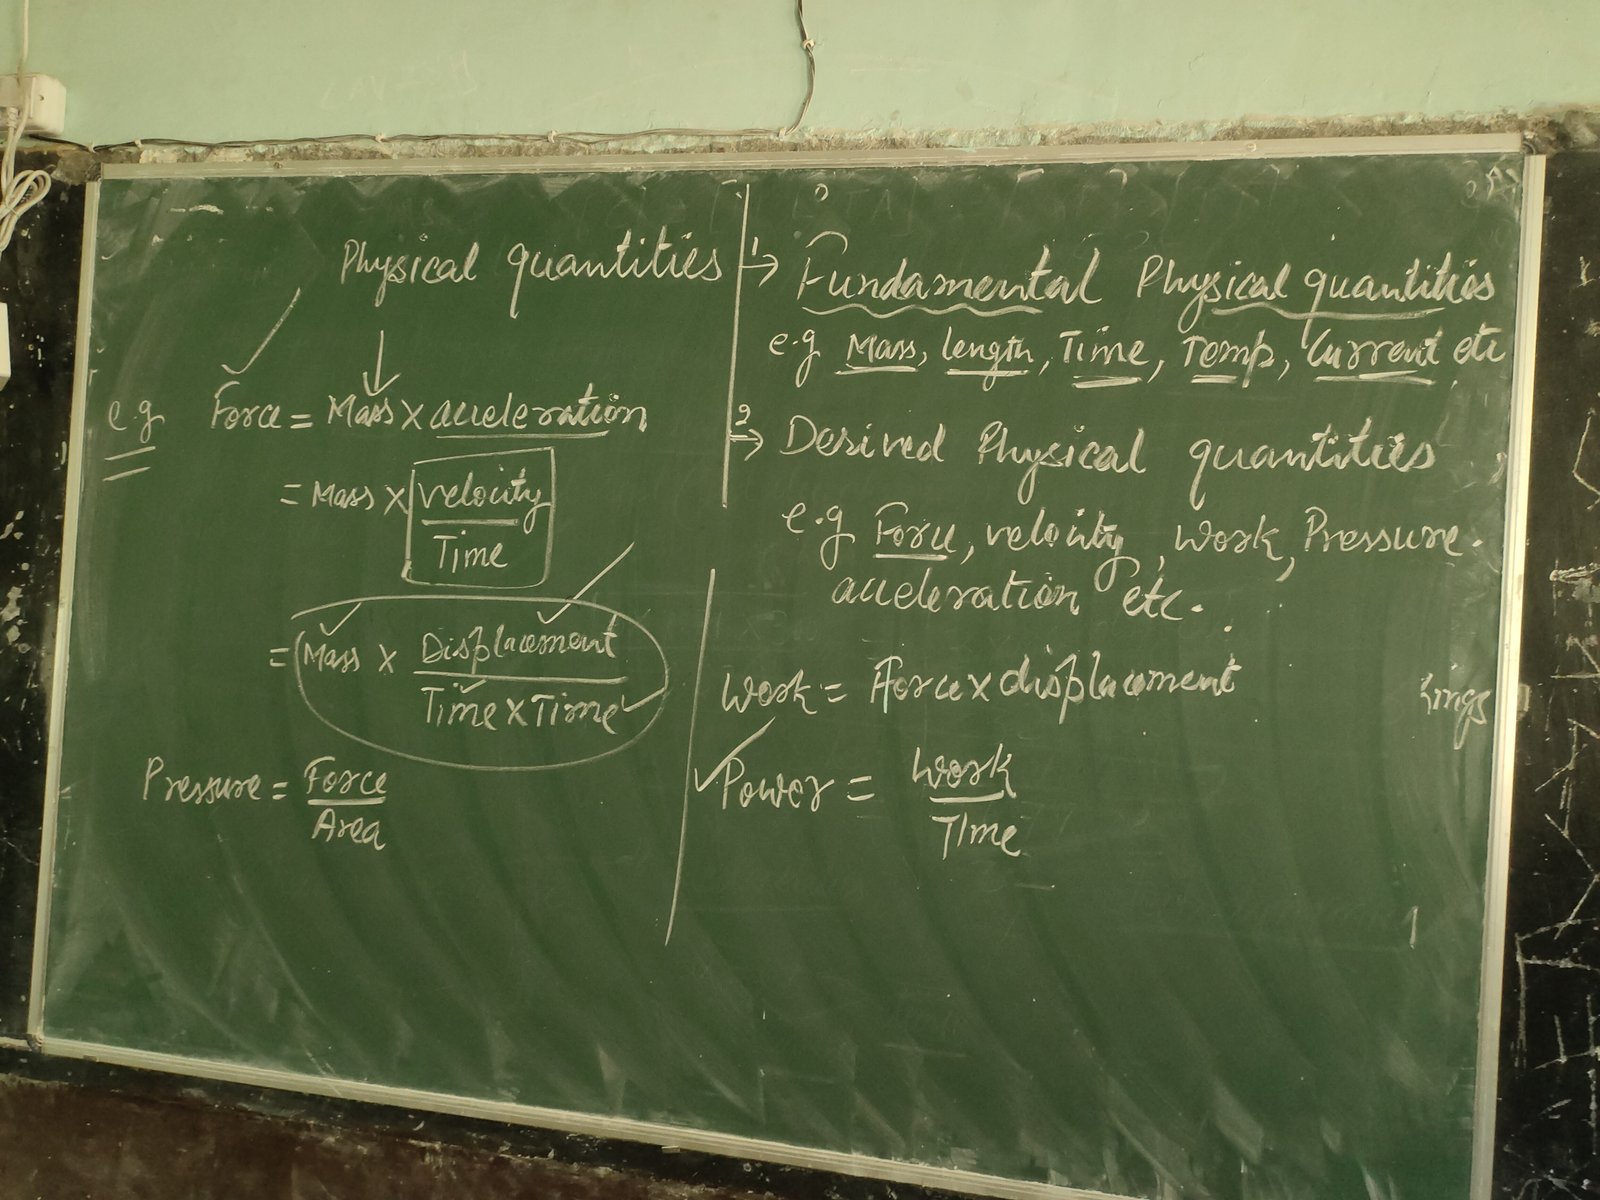 Physical quantities
e.g Force = Mass × acceleration
= Mass × velocity / Time
= Mass × Displacement / Time × Time
Pressure = Force / Area
1→ Fundamental Physical quantities
e.g Mass, length, Time, Temp, Current etc
2→ Derived Physical quantities
e.g Force, velocity, Work, Pressure.
acceleration etc.
Work = Force × displacement
Power = Work / Time